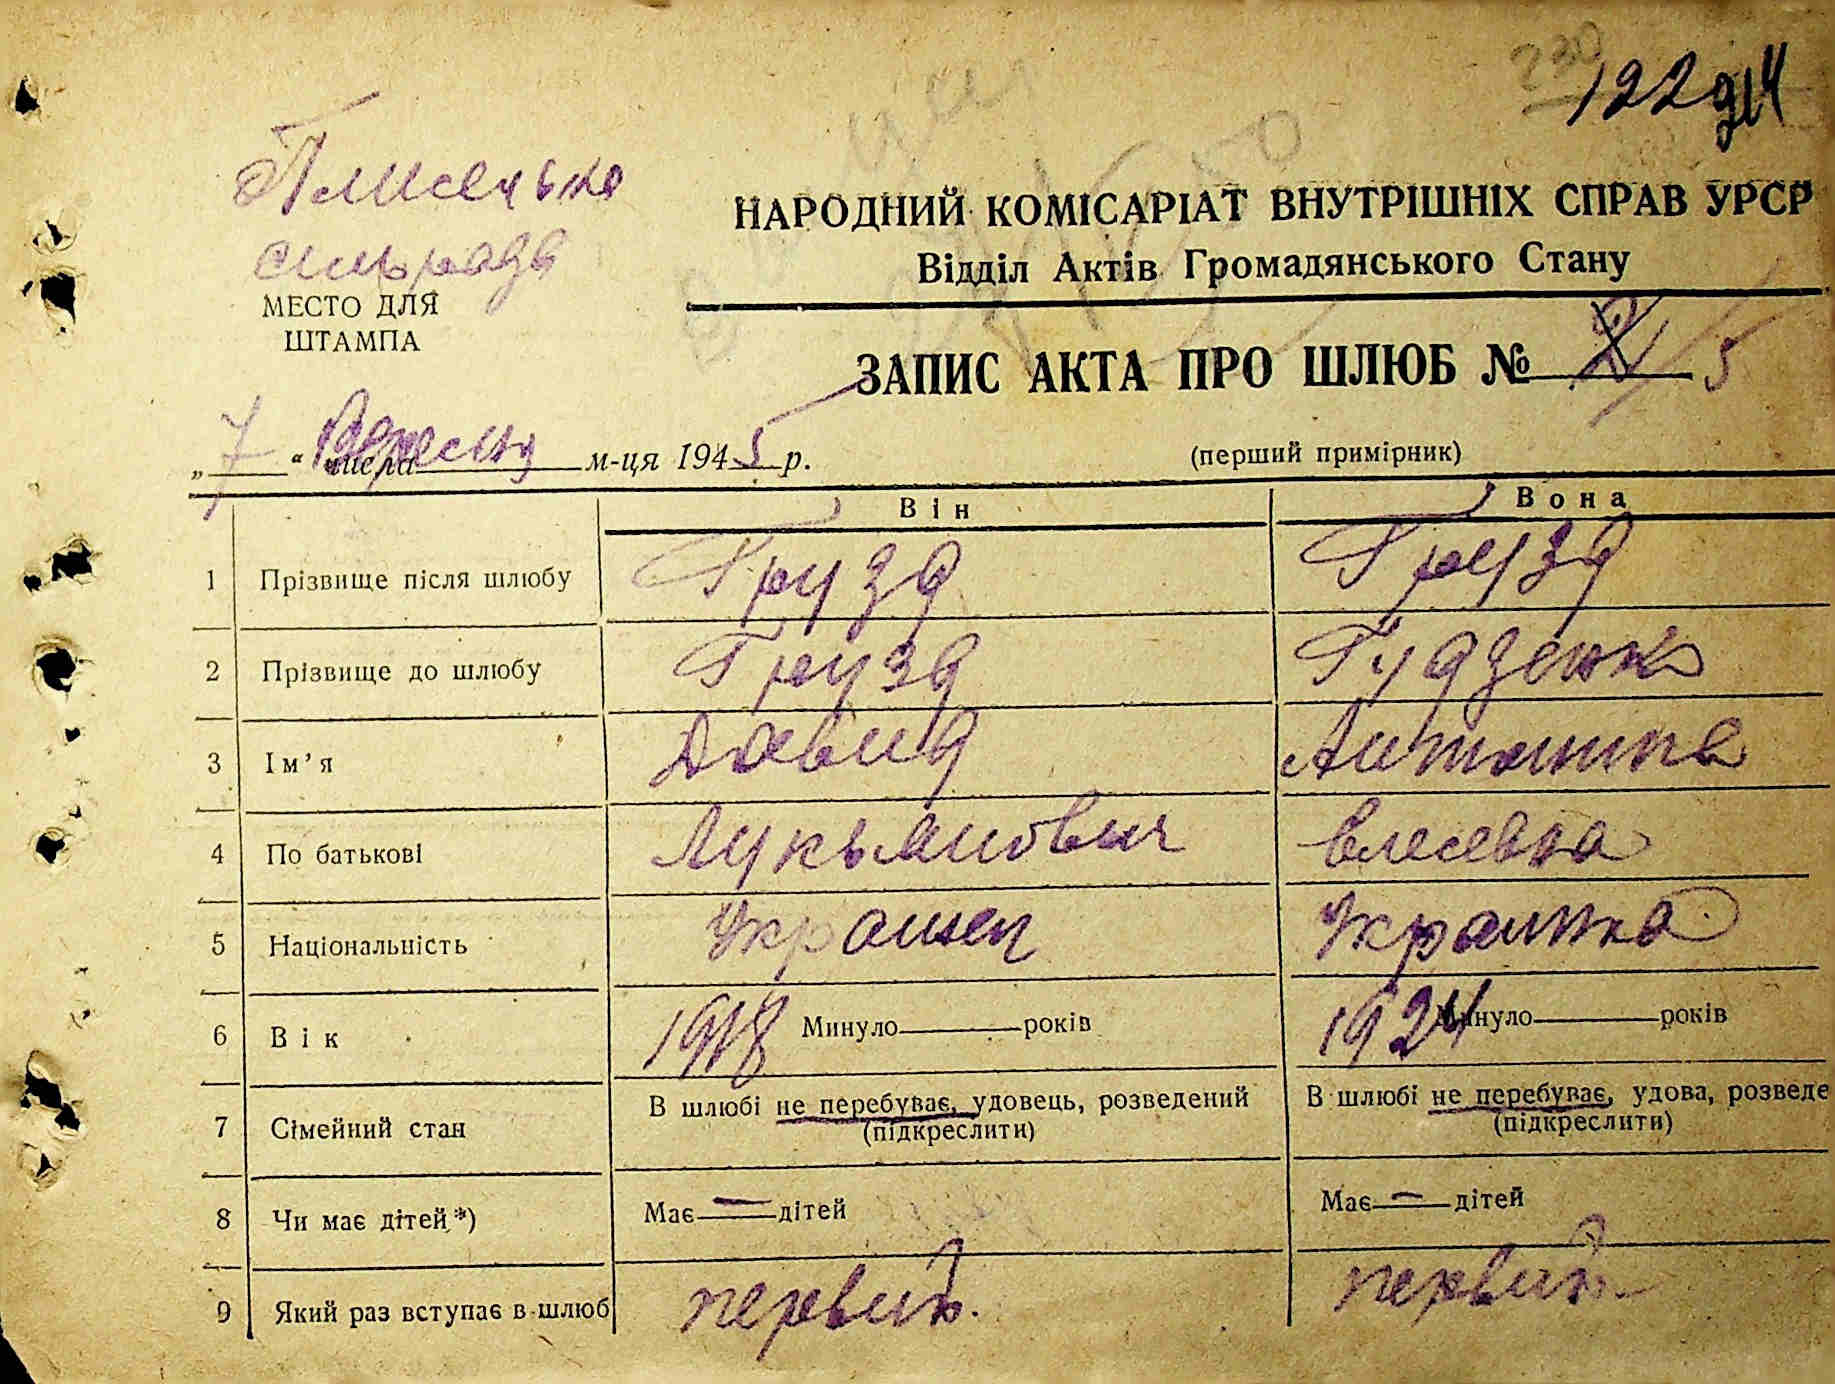 230
122 914
Плисецька
сільрада
МЕСТО ДЛЯ
ШТАМПА
НАРОДНИЙ КОМІСАРІАТ ВНУТРІШНІХ СПРАВ УРСР
Відділ Актів Громадянського Стану
ЗАПИС АКТА ПРО ШЛЮБ № 5
„7“ числа вересня м-ця 1945 р.
(перший примірник)
Він Вона
1 Прізвище після шлюбу Грузд Грузд
2 Прізвище до шлюбу Грузд Гудзенко
3 Ім’я Давид Антонина
4 По батькові Лукьянович Власевна
5 Національність Украинец Украинка
6 Вік 1918 Минуло років 1924 Минуло років
7 Сімейний стан В шлюбі не перебуває, удовець, розведений В шлюбі не перебуває, удова, розведе
(підкреслити) (підкреслити)
8 Чи має дітей*) Має — дітей Має — дітей
9 Який раз вступає в шлюб первий. первий.